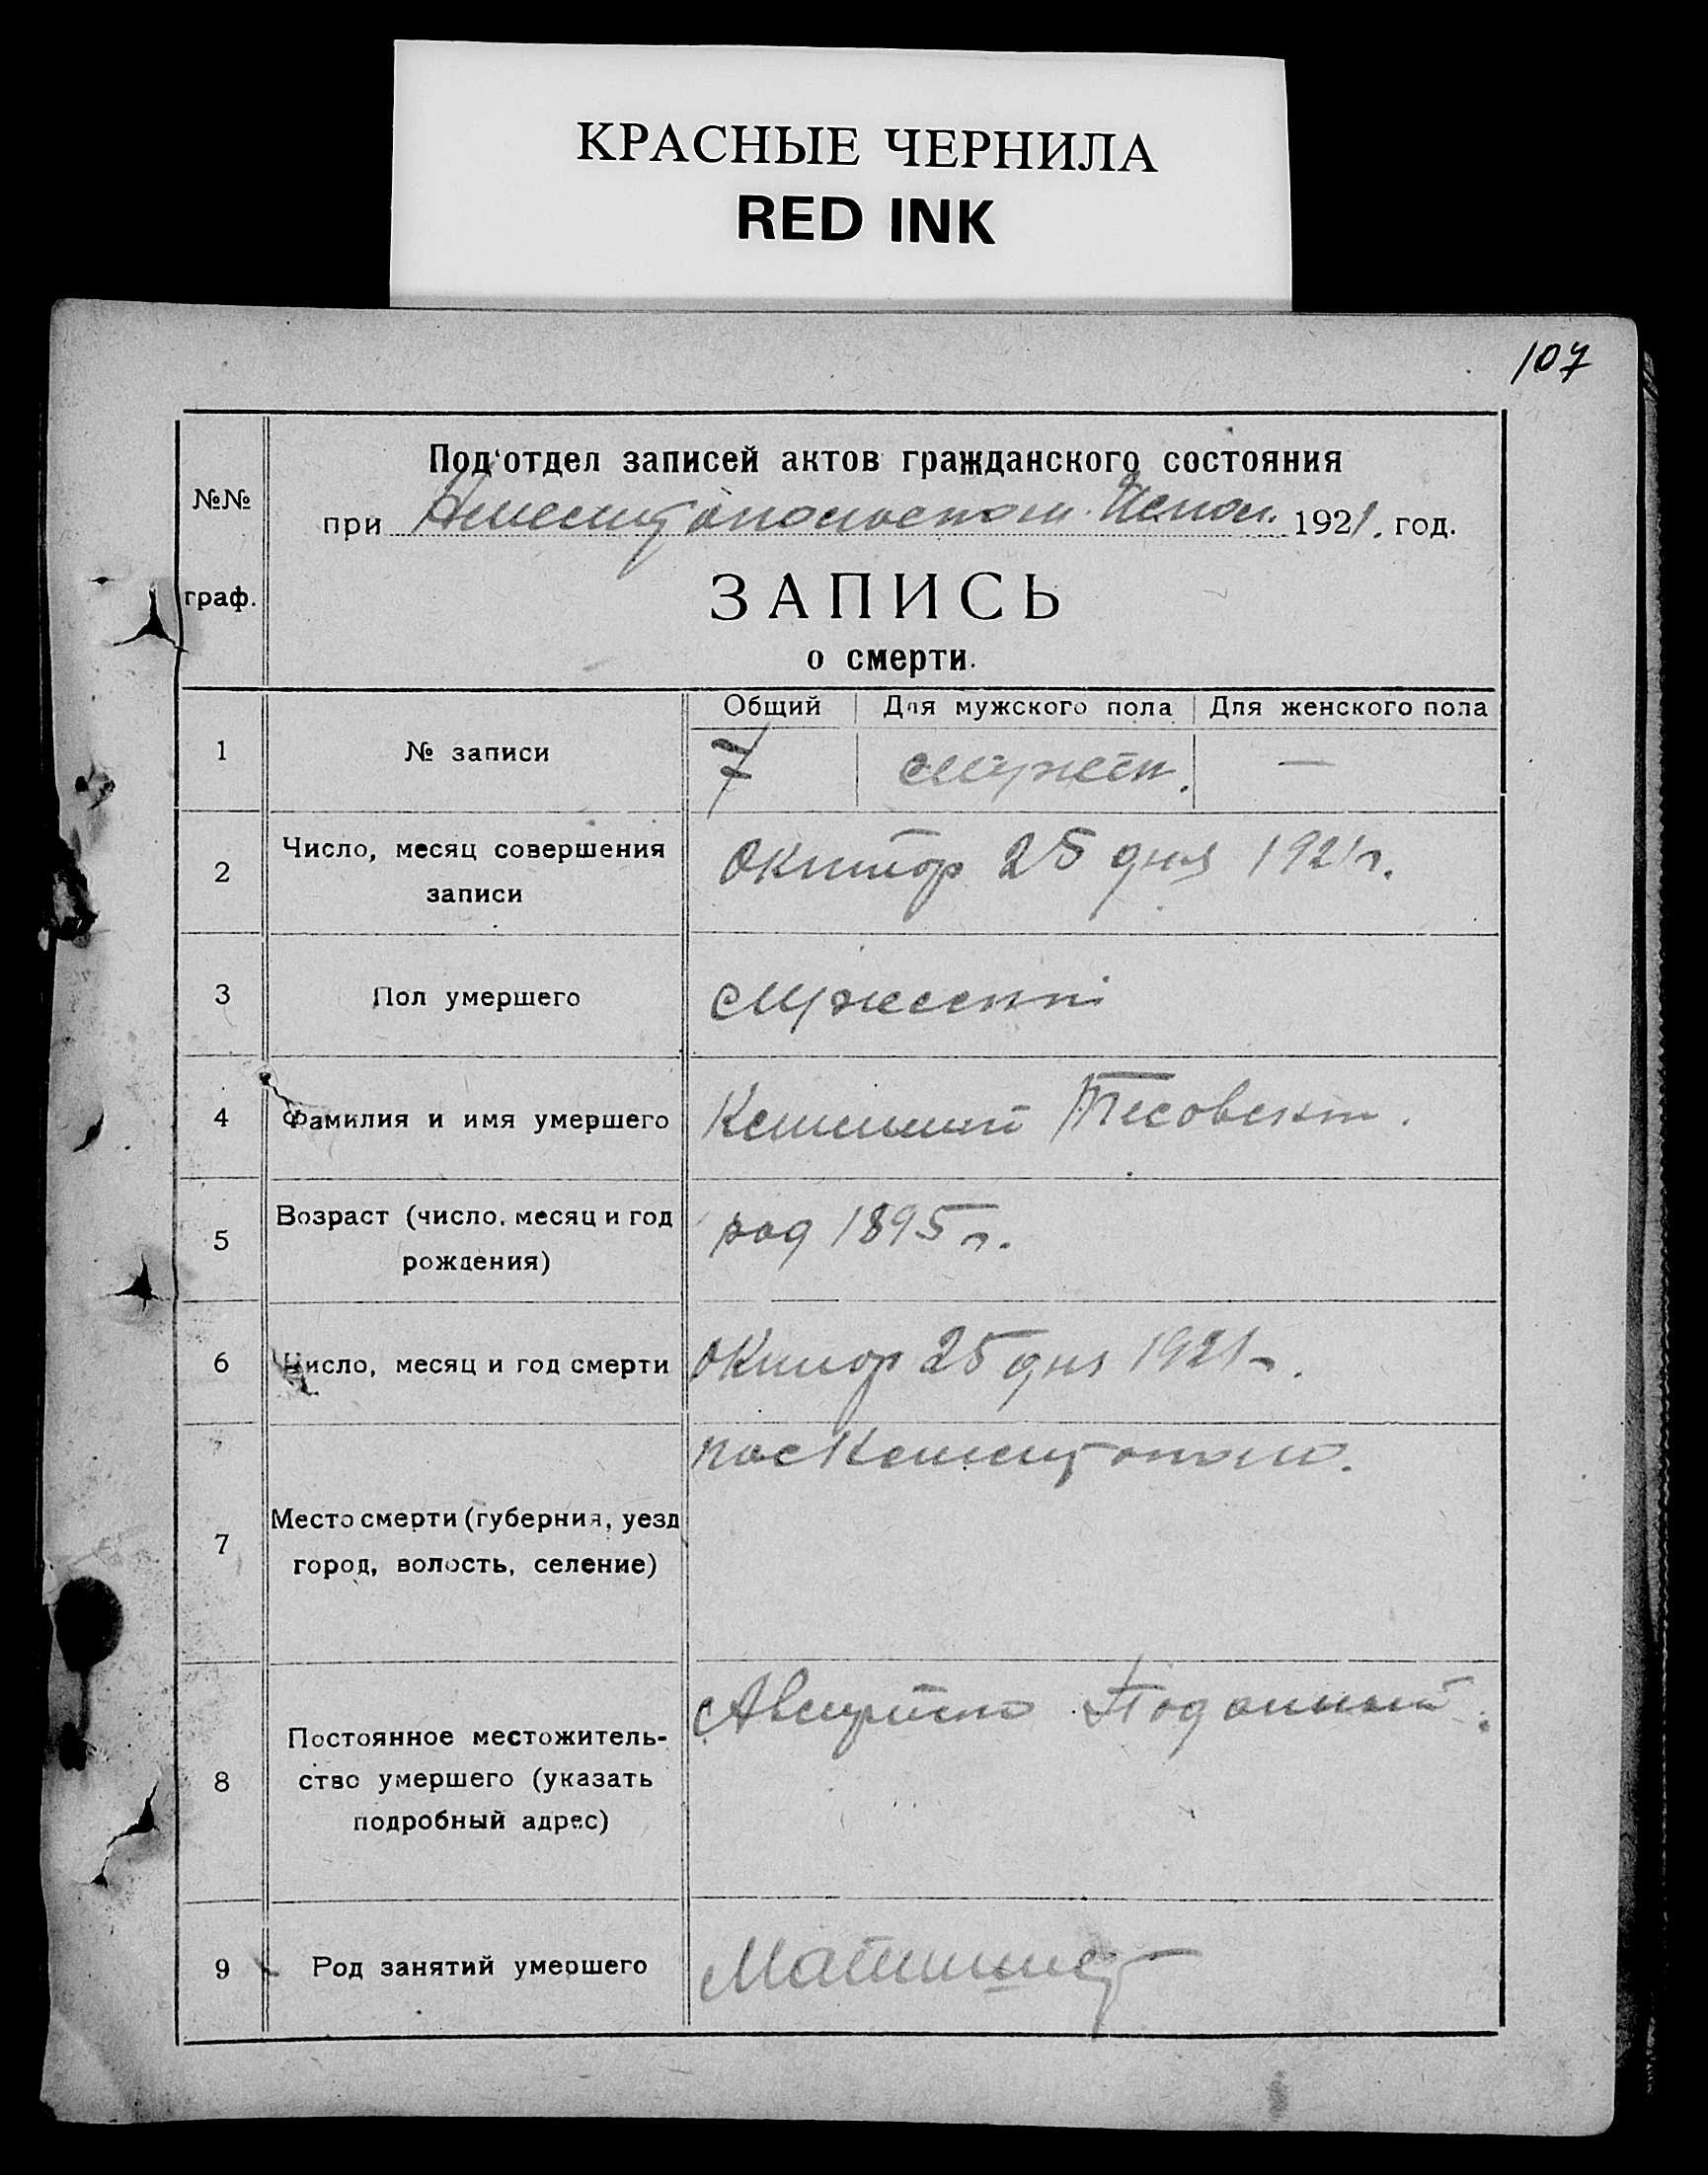 КРАСНЫЕ ЧЕРНИЛА
RED INK
107
№№ граф.
Под'отдел записей актов гражданского состояния
при Испол. 1921. год.
ЗАПИСЬ
о смерти.
Общий Для мужского пола Для женского пола
1 № записи 7 мужск. —
2 Число, месяц совершения записи Октяор 25 дня 1921 г.
3 Пол умершего мужескпи
4 Фамилия и имя умершего
5 Возраст (число, месяц и год рождения) род 1895 г.
6 Число, месяц и год смерти Октяор 25 дня 1921 г.
7 Место смерти (губерния, уезд город, волость, селение)
8 Постоянное местожитель-
ство умершего (указать
подробный адрес) Поданный.
9 Род занятий умершего